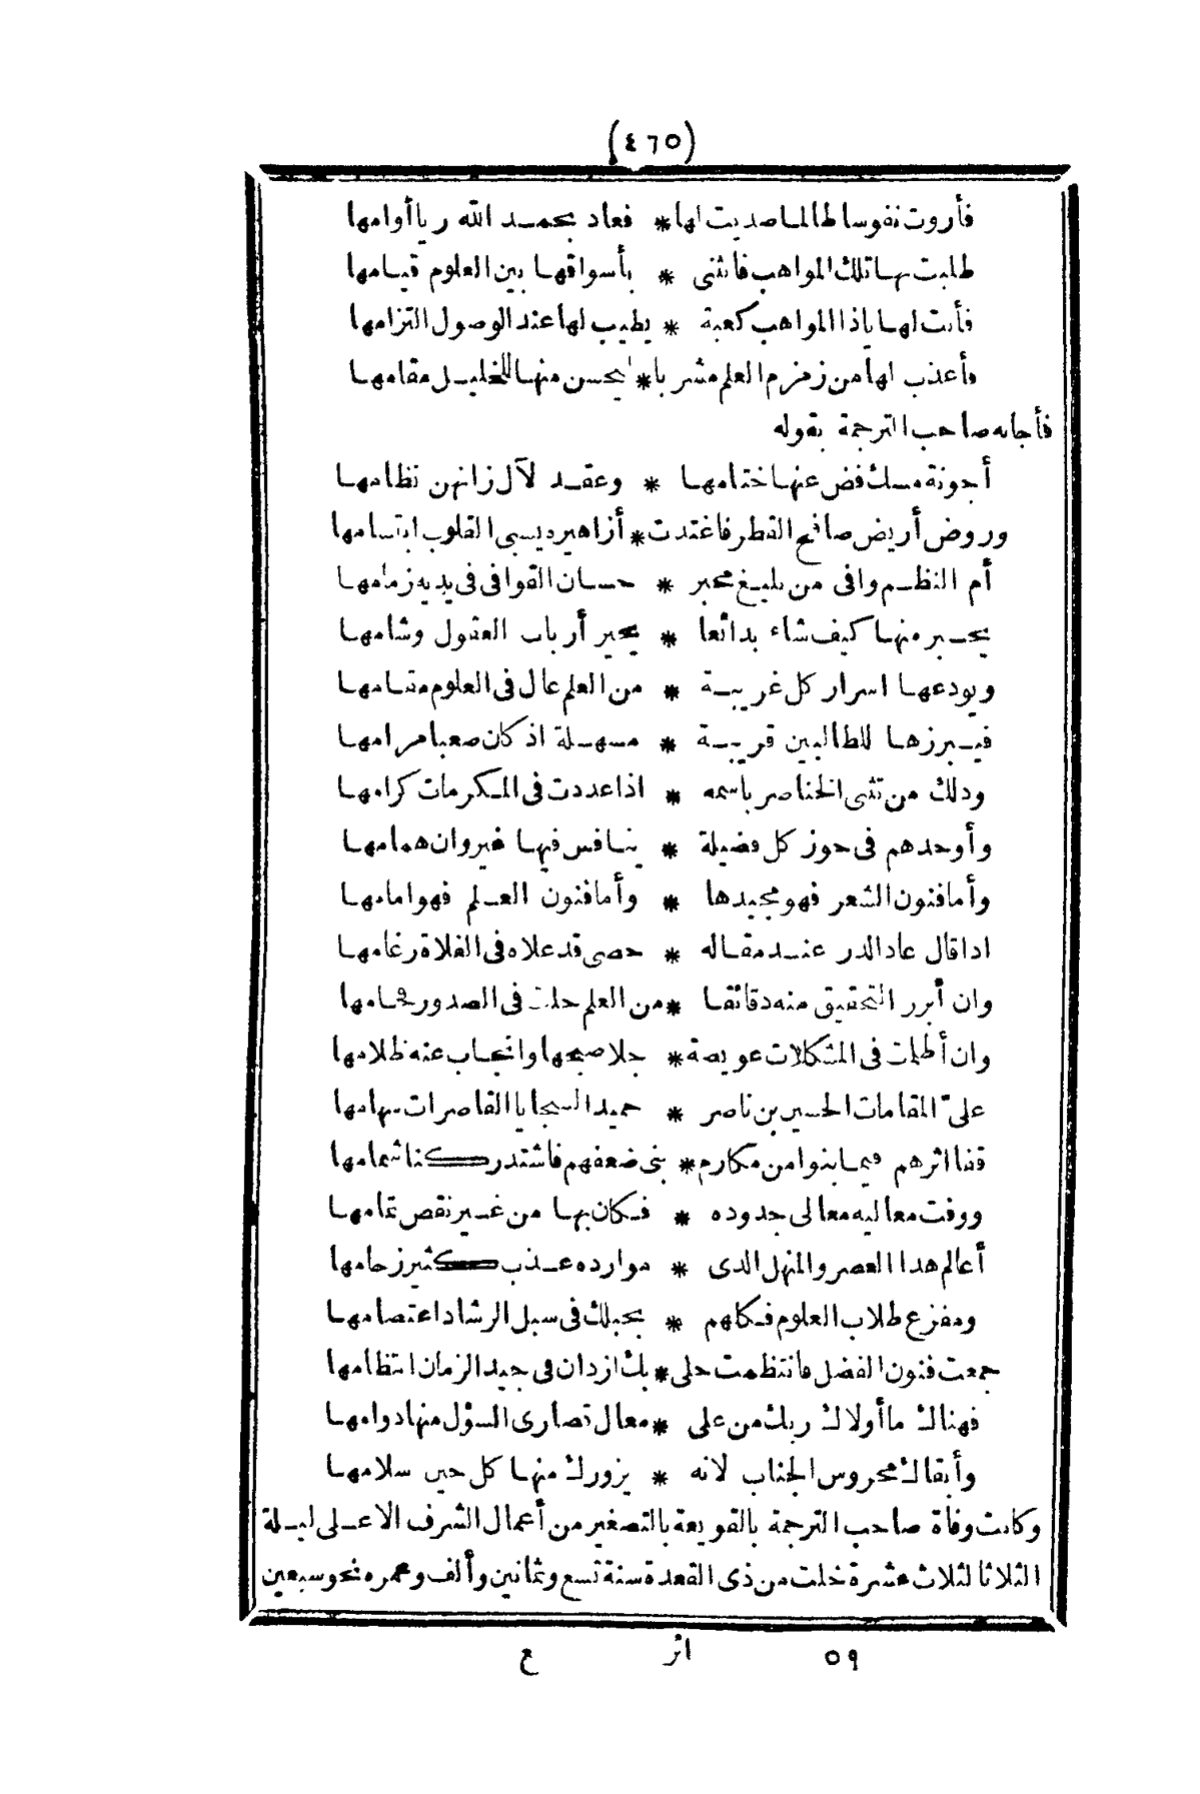 (٤٦٥)
فأروت نفوسا طالما صديت لها * فعاد بحمد الله ريا أوامها
طلبت بها تلك المواهب فانثنى * بأسواقها بين العلوم قيامها
فأنت لها ياذا المواهب كعبة * يطيب لها عند الوصول التزامها
فأعذب لها من زمزم العلم مشربا * يحسن منها للخليل مقامها
فأجابه صاحب الترجمة بقوله
أجونة مسك فض عنها ختامها * وعقد لآل زانهن نظامها
وروض أريض صافح القطر فاغتدت * أزاهيره يسبى القلوب ابتسامها
أم النظم وافى من بليغ محبر * حسان القوافى فى يديه زمامها
يحبر منها كيف شاء بدائعا * يحير أرباب العقول وشامها
ويودعها اسرار كل غريبة * من العلم عال فى العلوم مقامها
فيبرزها للطالبين قريبة * مسهلة اذ كان صعبا مرامها
وذلك من تثنى الخناصر باسمه * اذا عددت فى المكرمات كرامها
وأوحدهم فى حوز كل فضيلة * ينافس فيها غير وان همامها
وأما فنون الشعر فهو مجيدها * وأما فنون العلم فهو امامها
اذا قال عاد الدر عند مقاله * حصى قد علاه فى الفلاة رغامها
وان أبرز التحقيق منه دقائقا * من العلم حلت فى الصدور فخامها
وان أظلمت فى المشكلات عويصة * جلا صبحها وانجاب عنه ظلامها
علىّ المقامات الحسين بن ناصر * حميد السجايا القاصرات سهامها
قفا اثرهم فيما بنوا من مكارم * بنى ضعفهم فاشتد ركنا شمامها
ووفت معاليه معالى جدوده * فكان بها من غير نقص تمامها
أعالم هذا العصر والمنهل الذى * موارده عذب كثير زحامها
ومفزع طلاب العلوم فكلهم * بحبلك فى سبل الرشاد اعتصامها
جمعت فنون الفضل فانتظمت حلى * بك ازدان فى جيد الزمان انتظامها
فهناك ما أولاك ربك من على * معال قصارى السؤل منها دوامها
وأبقاك محروس الجناب لانه * يزورك منها كل حين سلامها
وكانت وفاة صاحب الترجمة بالقويعة بالتصغير من أعمال الشرف الاعلى ليلة
الثلاثا لثلاث عشرة خلت من ذى القعدة سنة تسع وثمانين وألف وعمره نحو سبعين
٥٩ اثر ع